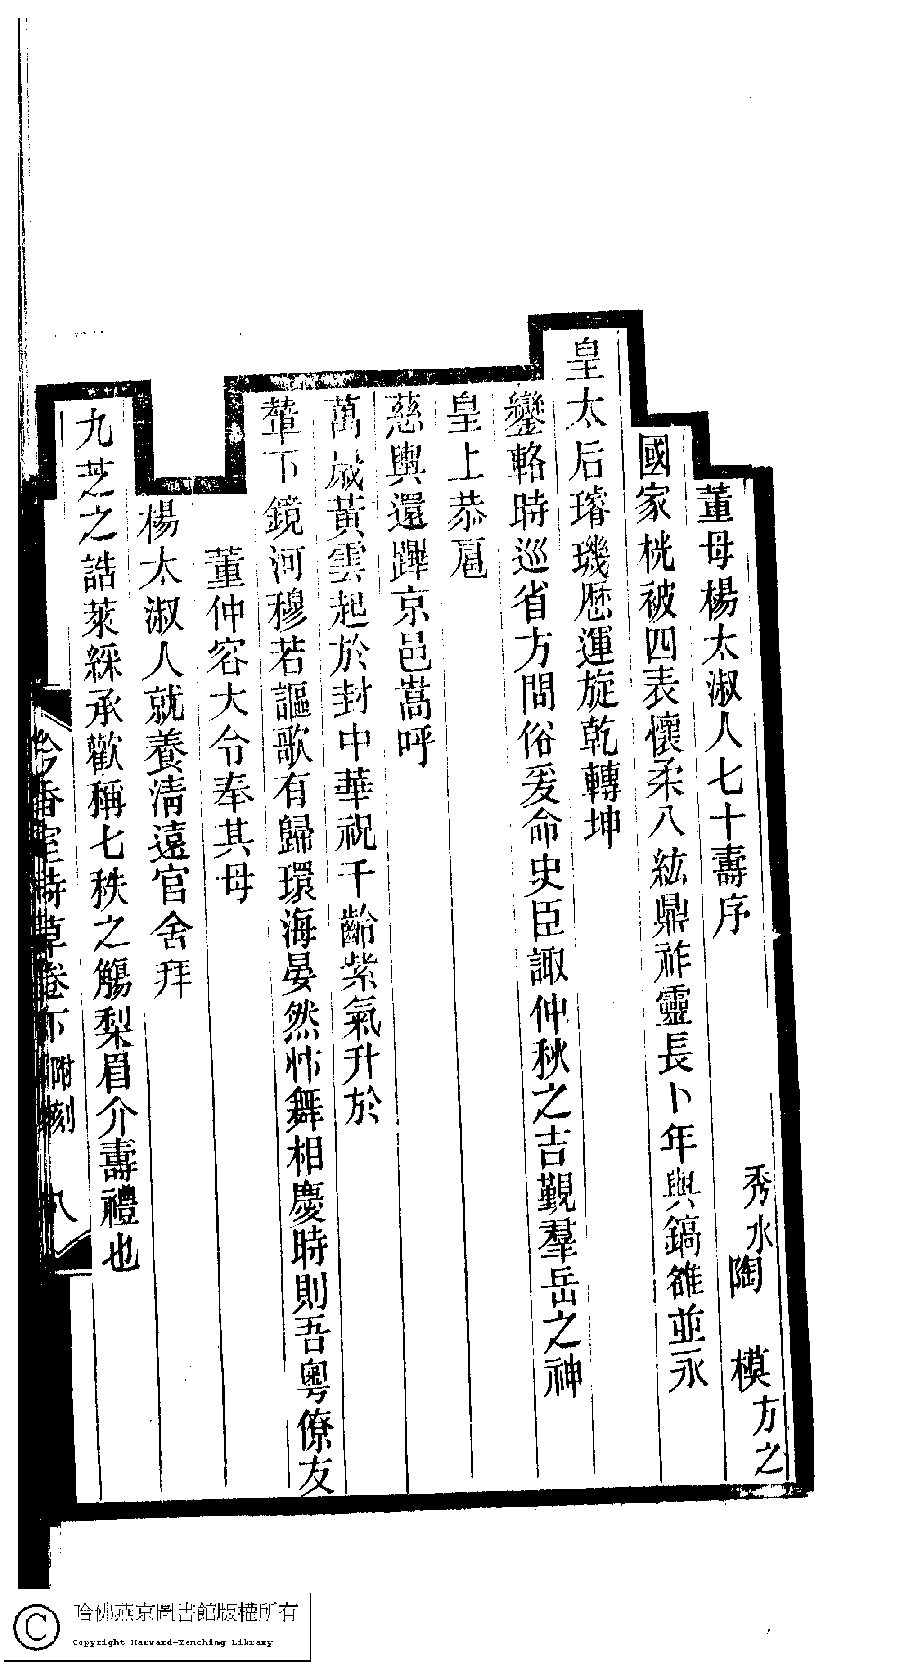 董母楊太淑人七十壽序
秀水陶　模方之
國家桄被四表懷柔八紘鼎祚靈長卜年與鎬雒並永
皇太后璿璣歷運旋乾轉坤
鑾輅時巡省方問俗爰命史臣諏仲秋之吉覲羣岳之神
皇上恭扈
慈輿還蹕京邑嵩呼
萬歲黃雲起於封中華祝千齡紫氣升於
輦下鏡河穆若謳歌有歸環海晏然忭舞相慶時則吾粵僚友
董仲容大令奉其母
楊太淑人就養清遠官舍拜
九芝之誥萊綵承歡稱七秩之觴梨眉介壽禮也
吟香室詩草卷下 附刻 八
哈佛燕京圖書館版權所有
Copyright Harvard-Yenching Library